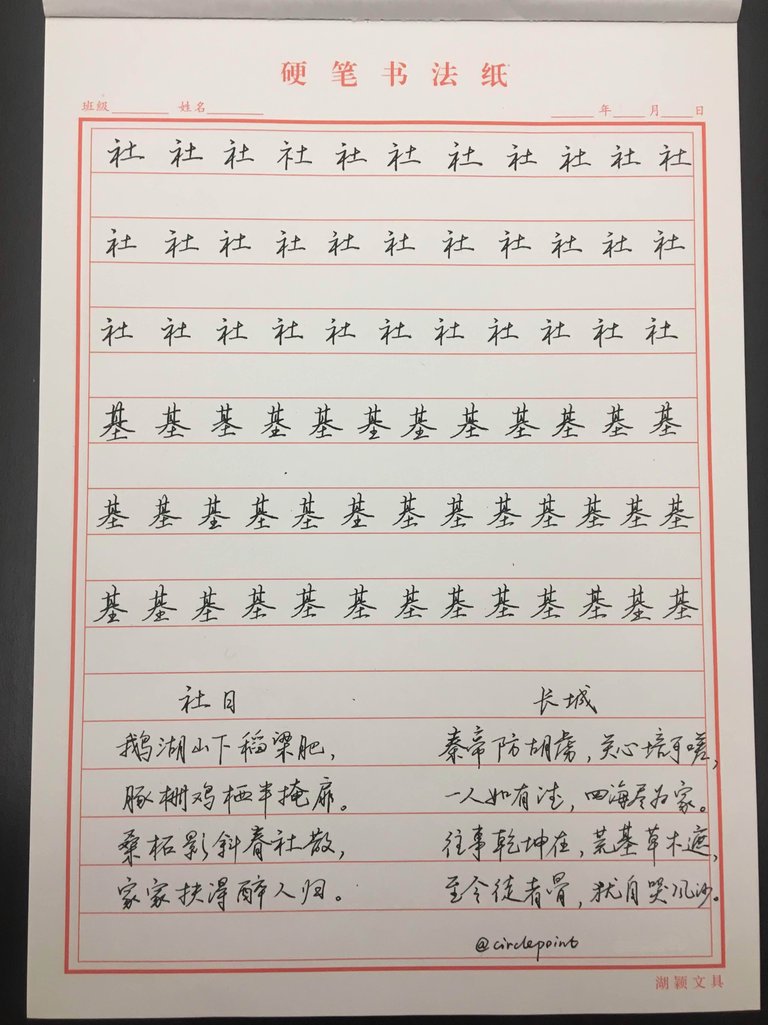 硬笔书法纸
班级 姓名 年 月 日
社 社 社 社 社 社 社 社 社 社 社
社 社 社 社 社 社 社 社 社 社 社
社 社 社 社 社 社 社 社 社 社 社
基 基 基 基 基 基 基 基 基 基 基 基
基 基 基 基 基 基 基 基 基 基 基 基 基
基 基 基 基 基 基 基 基 基 基 基 基 基
社日
鹅湖山下稻粱肥,
豚栅鸡栖半掩扉。
桑柘影斜春社散,
家家扶得醉人归。
长城
秦帝防胡虏,关心倍可嗟,
一人如有德,四海尽为家。
往事乾坤在,荒基草木遮,
至今徒者骨,犹自哭风沙。
@circlepoint
湖颖文具